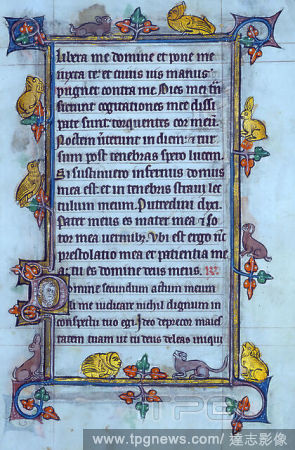 Libera me domine et pone me
iuxta te et cuius uis manus
pugnet contra me Dies mei tn̄
sierunt cogitationes mee dissi
pate sunt torquentes cor meū
Noctem ūterunt in diem et rur
sum post tenebras spero lucem
Si sustinuero infernus domus
mea est et in tenebris straui lec
tulium meum. Putredini dixi
Pater meus es mater mea et so
ror mea uermibus. Ubi est ergo
prestolatio mea et patientia me
a tu es domine deus meus.
Domine secundum actum meum
noli me iudicare nichil dignum in
conspectu tuo egi Ideo deprecor maies
tatem tuam ut tu deus deleas iniqui
TPG
www.tpgnews.com / 達志影像